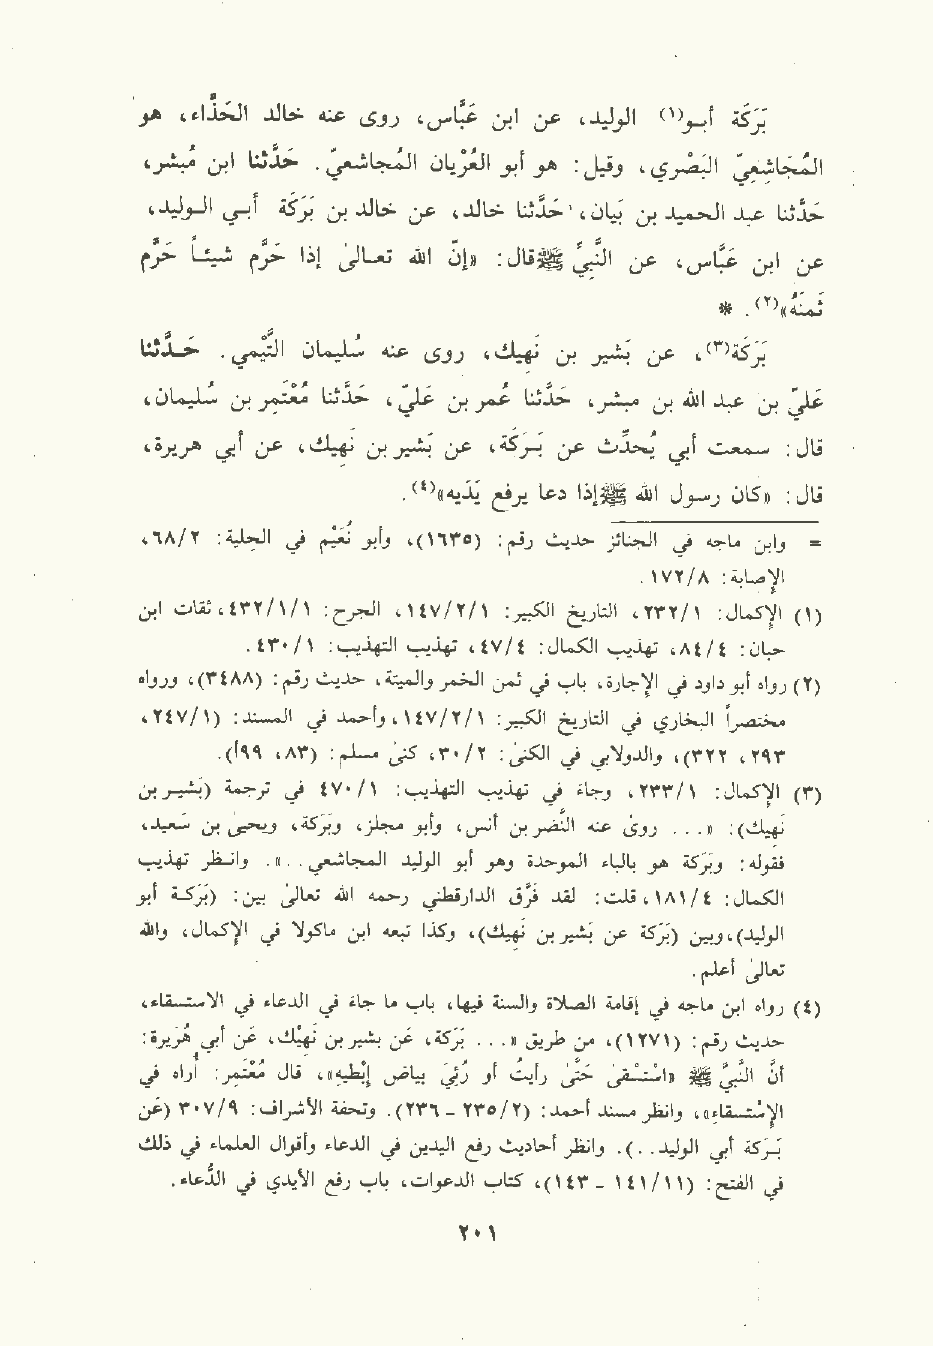 بَرَكَة أبـو(١) الوليد، عن ابن عَبَّاس، روى عنه خالد الحَذَّاء، هو
المُجَاشِعِيّ البَصْري، وقيل: هو أبو العُرْيان المُجاشعيّ. حَدَّثنا ابن مُبشر،
حَدَّثنا عبد الحميد بن بيَان، حَدَّثنا خالد، عن خالد بن بَرَكَة أبـي الـوليد،
عن ابن عَبَّاس، عن النَّبيِّ ﷺ قال: «إنَّ الله تعـالىٰ إذا حَرَّم شيئـاً حَرَّم
ثَمنَهُ»(٢). *
بَرَكَة(٣)، عن بَشير بن نَهيك، روى عنه سُليمان التَّيْمي. حَـدَّثنا
عَليّ بن عبد الله بن مبشر، حَدَّثنا عُمر بن عَليّ، حَدَّثنا مُعْتَمِر بن سُليمان،
قال: سمعت أبي يُحدِّث عن بَـرَكَة، عن بَشير بن نَهيك، عن أبي هريرة،
قال: «كان رسول الله ﷺ إذا دعا يرفع يَدَيه»(٤).
= وابن ماجه في الجنائز حديث رقم: (١٦٣٥)، وأبو نُعَيْم في الحلية: ٦٨/٢،
الإصابة: ١٧٢/٨.
(١) الإكمال: ٢٣٢/١، التاريخ الكبير: ١٤٧/٢/١، الجرح: ٤٣٢/١/١، ثقات ابن
حبان: ٨٤/٤، تهذيب الكمال: ٤٧/٤، تهذيب التهذيب: ٤٣٠/١.
(٢) رواه أبو داود في الإجارة، باب في ثمن الخمر والميتة، حديث رقم: (٣٤٨٨)، ورواه
مختصراً البخاري في التاريخ الكبير: ١٤٧/٢/١، وأحمد في المسند: (٢٤٧/١،
٢٩٣، ٣٢٢)، والدولابي في الكنىٰ: ٣٠/٢، كنىٰ مسلم: (٨٣، ٩٩أ).
(٣) الإكمال: ٢٣٣/١، وجاء في تهذيب التهذيب: ٤٧٠/١ في ترجمة (بَشير بن
نَهيك): «... روىٰ عنه النَّضر بن أنس، وأبو مجلز، وبَرَكة، ويحيىٰ بن سَعيد،
فقوله: وبَرَكة هو بالباء الموحدة وهو أبو الوليد المجاشعي...». وانظر تهذيب
الكمال: ١٨١/٤، قلت: لقد فَرَّق الدارقطني رحمه الله تعالىٰ بين: (بَرَكة أبو
الوليد)، وبين (بَرَكة عن بَشير بن نَهيك)، وكذا تبعه ابن ماكولا في الإكمال، والله
تعالىٰ أعلم.
(٤) رواه ابن ماجه في إقامة الصلاة والسنة فيها، باب ما جاء في الدعاء في الاستسقاء،
حديث رقم: (١٢٧١)، من طريق «... بَرَكة، عَن بشير بن نَهيْك، عَن أبي هُرَيرة:
أنَّ النَّبيَّ ﷺ «اسْتَسْقىٰ حَتَّىٰ رأيتُ أو رُئِيَ بياض إبْطيهِ»، قال مُعْتَمِر: أراه في
الإسْتسقاء»، وانظر مسند أحمد: (٢٣٥/٢ - ٢٣٦). وتحفة الأشراف: ٣٠٧/٩ (عَن
بَـرَكة أبي الوليد...). وانظر أحاديث رفع اليدين في الدعاء وأقوال العلماء في ذلك
في الفتح: (١٤١/١١ - ١٤٣)، كتاب الدعوات، باب رفع الأيدي في الدُّعاء.
٢٠١